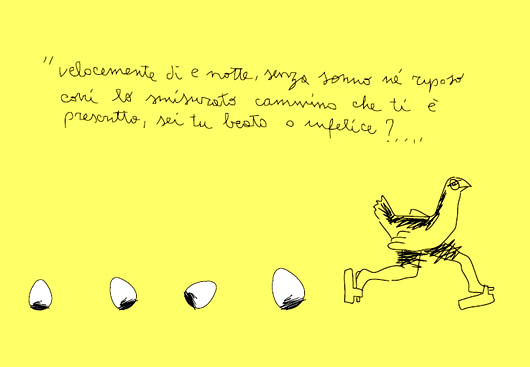 "velocemente dì e notte, senza sonno né riposo
corri lo smisurato cammino che ti è
prescritto, sei tu beato o infelice?....."